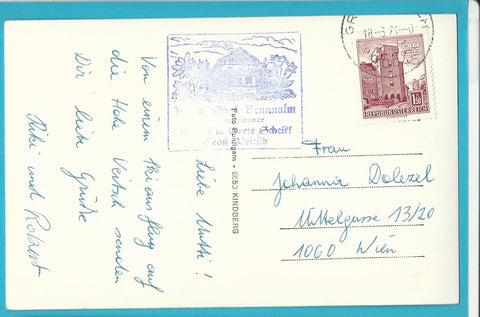 Liebe Mutti!
Von einem Skiausflug auf
die Hohe Veitsch senden
Dir liebe Grüße
und Robert
Brunnalm
Grete Scheikl
Groß-Veitsch
Foto Fürböck - 8650 KINDBERG
REPUBLIK ÖSTERREICH
1.50
Frau
Johanna Dolezel
Mittelgasse 13/20
1060 Wien